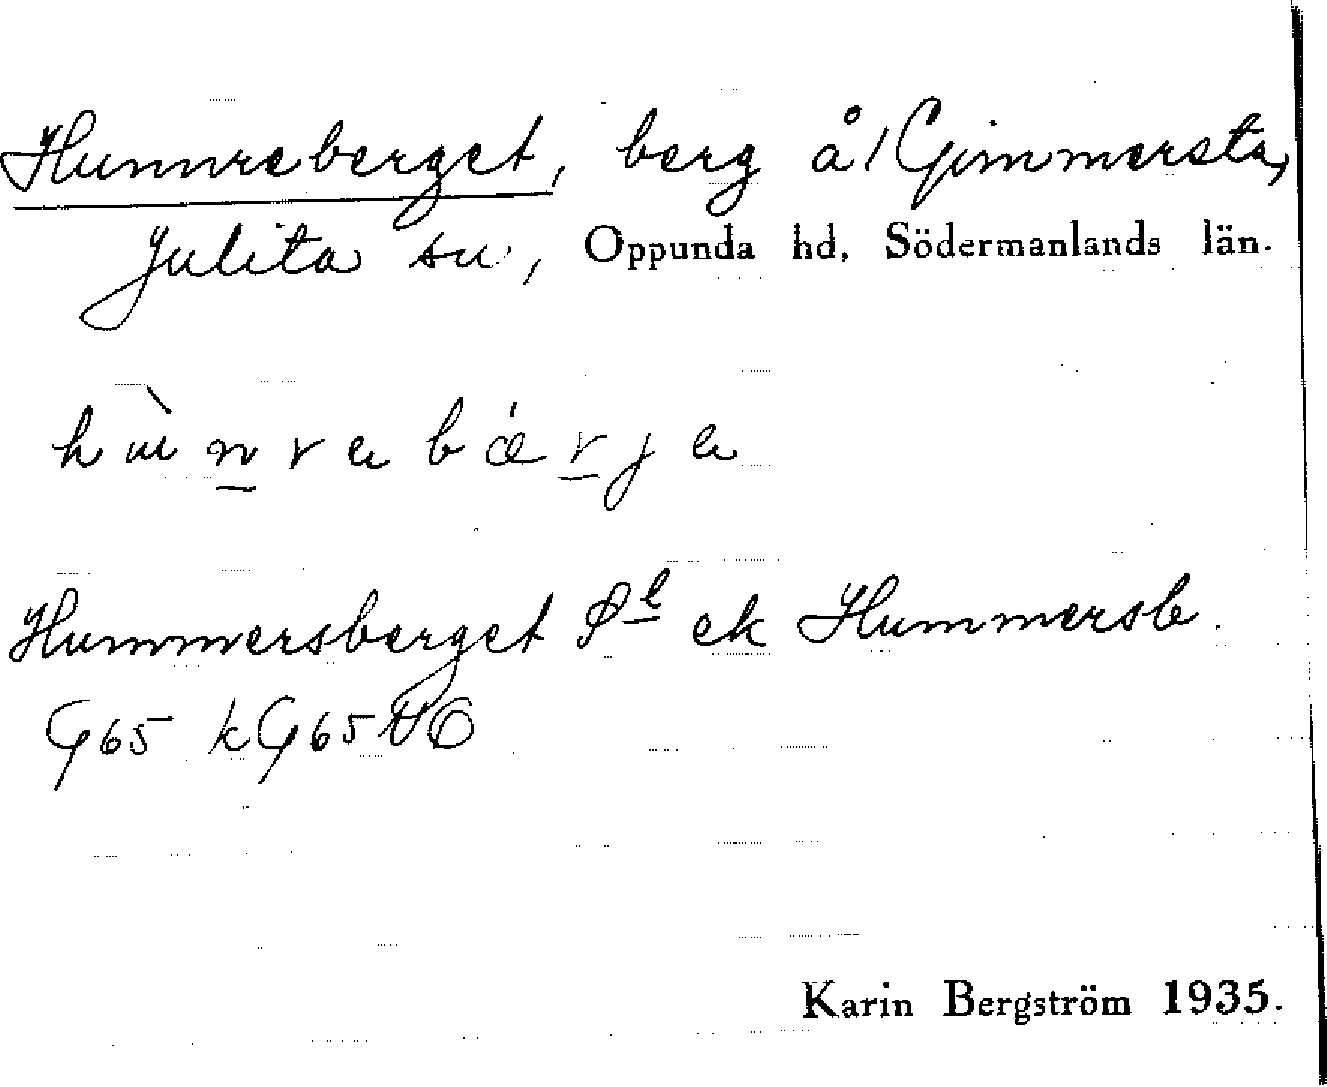 Hunnreberget, berg å/ Gimmersta,
Julita sn, Oppunda hd, Södermanlands län.
Hummersberget ek Hummersb.
G65 kG65
Karin Bergström 1935.